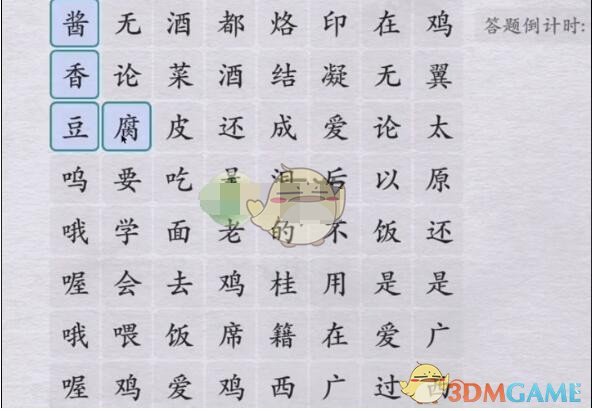 酱无酒都烙印在鸡 答题倒计时:
香论菜酒结凝无翼
豆腐皮还成爱论太
呜要吃 后以原
哦学面老的不饭还
喔会去鸡桂用是是
哦喂饭席籍在爱广
喔鸡爱鸡西广过
3DMGAME